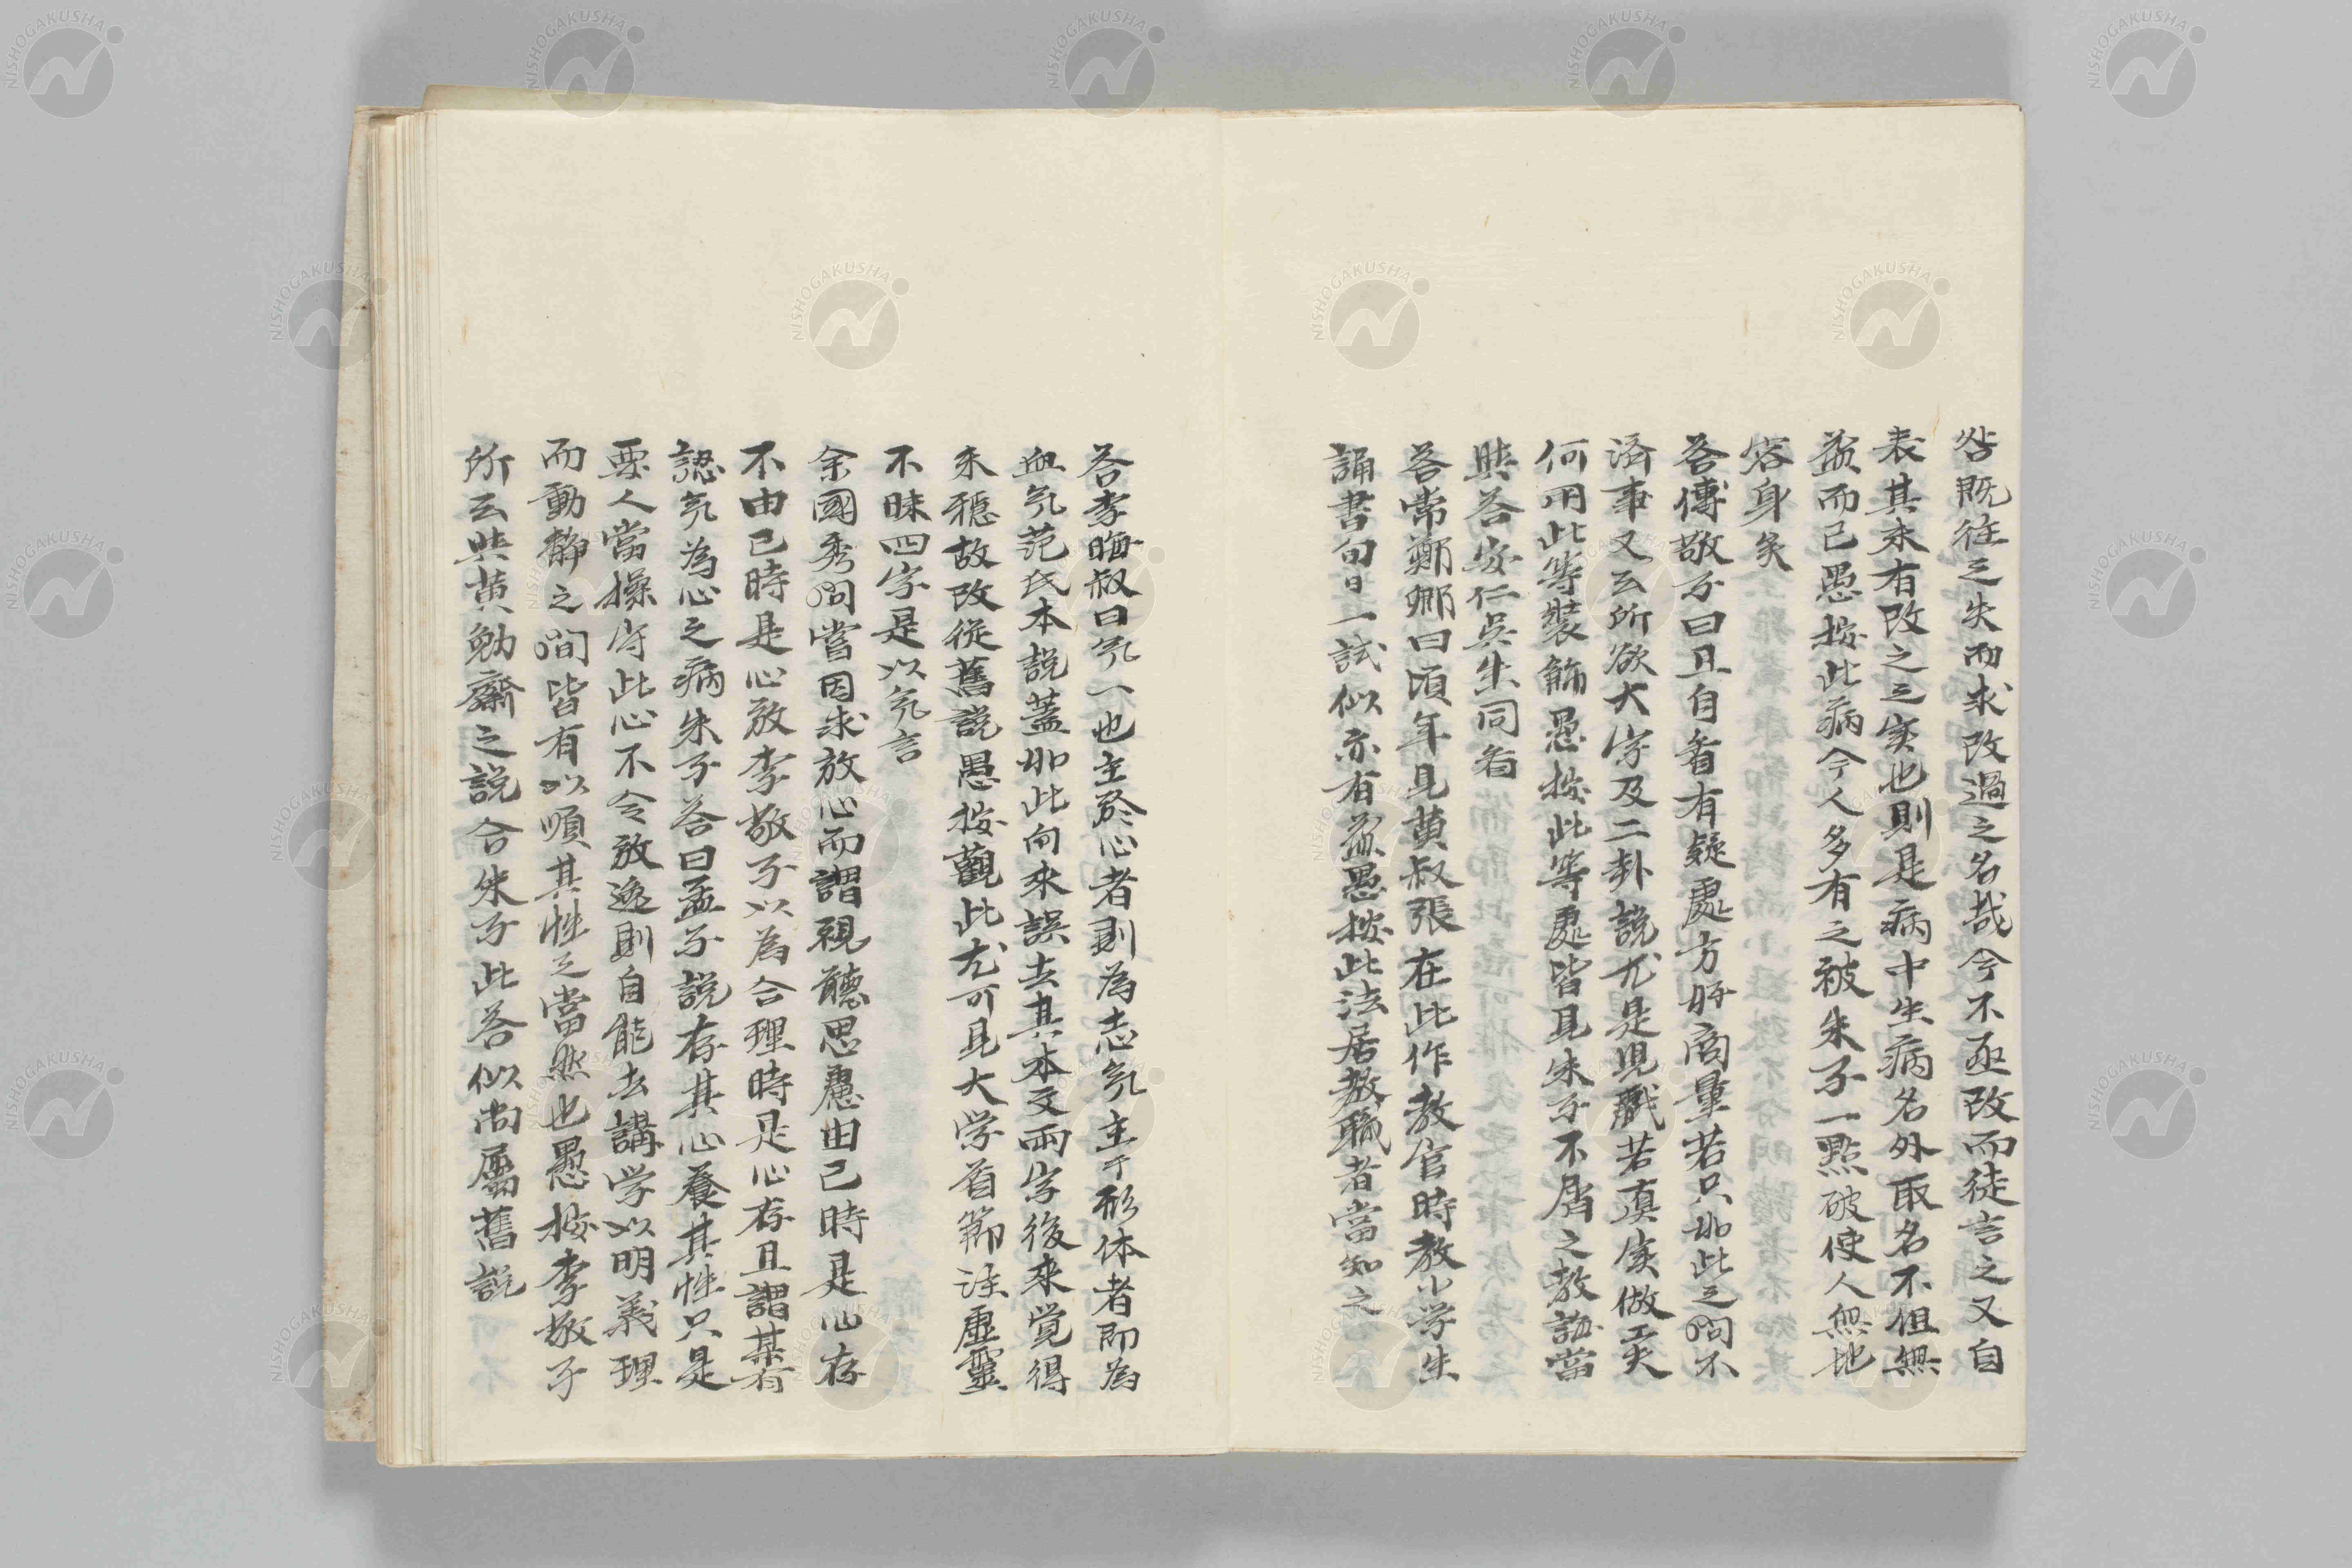 咎既往之失而求改過之名哉今不亟改而徒言之又自
表其未有改之之实也則是病中生病名外取名不但無
益而已愚按此病今人多有之被朱子一點破使人無地
容身矣
答傅敬子曰且自看有疑處方好商量若只如此之問不
済事又云所欲大字及二卦説尤是児戲若真实做工夫
何用此等裝飾愚按此等處皆見朱子不屑之教誨當
与答安仁吳生同看
答常鄭卿曰頃年見黄叔張在此作教官時教小学生
誦書旬日一試似亦有益愚按此法居教職者當知之
答李晦叔曰氕一也主於心者則為志氕主于形体者即為
血氕范氏本説蓋如此向來誤去其本文兩字後來覚得
未穏故改従舊説愚按觀此尤可見大学首節注虛靈
不昧四字是以氕言
余國秀問嘗因求放心而謂視聽思慮由己時是心存
不由己時是心放李敬子以為合理時是心存且謂某有
認氕為心之病朱子答曰孟子説存其心養其性只是
要人當操守此心不令放逸則自能去講学以明義理
而動静之間皆有以順其性之當然也愚按李敬子
所云与黄勉齋之説合朱子此答似尚屬舊説